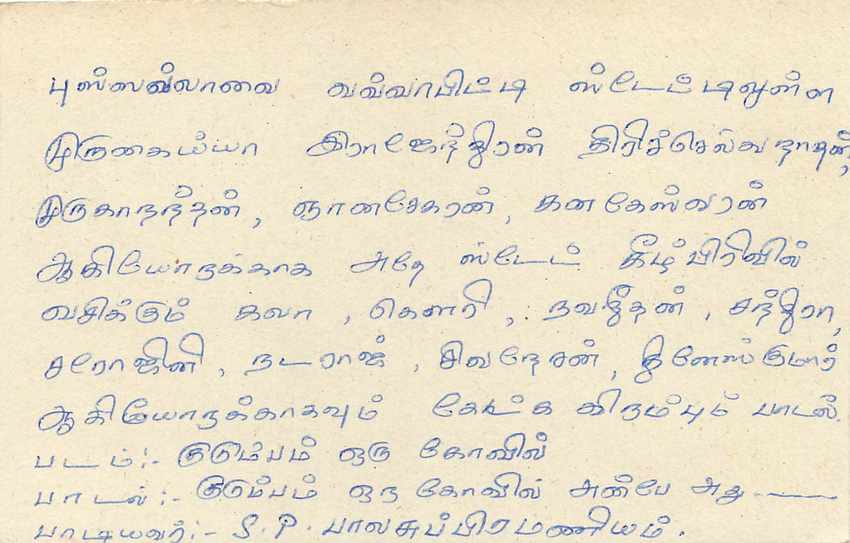 புஸ்ஸல்லாவை வவ்வாபிட்டி ஸ்டேட்டிலுள்ள
முருகைய்யா இராஜேந்திரன் திரிச்செல்வநாதன்,
முருகாநந்தன், ஞானசேகரன், கனகேஸ்வரன்
ஆகியோருக்காக அதே ஸ்டேட் கீழ்பிரிவில்
வசிக்கும் கலா, கௌரி, நவஜீதன், சந்திரா,
சரோஜினி, நடராஜ், சிவநேசன், தினேஸ்குமார்
ஆகியோருக்காகவும் கேட்க விரும்பும் பாடல்.
படம்:- குடும்பம் ஒரு கோவில்
பாடல்:- குடும்பம் ஒரு கோவில் அன்பே அது ——
பாடியவர்:- S.P. பாலசுப்பிரமணியம்.